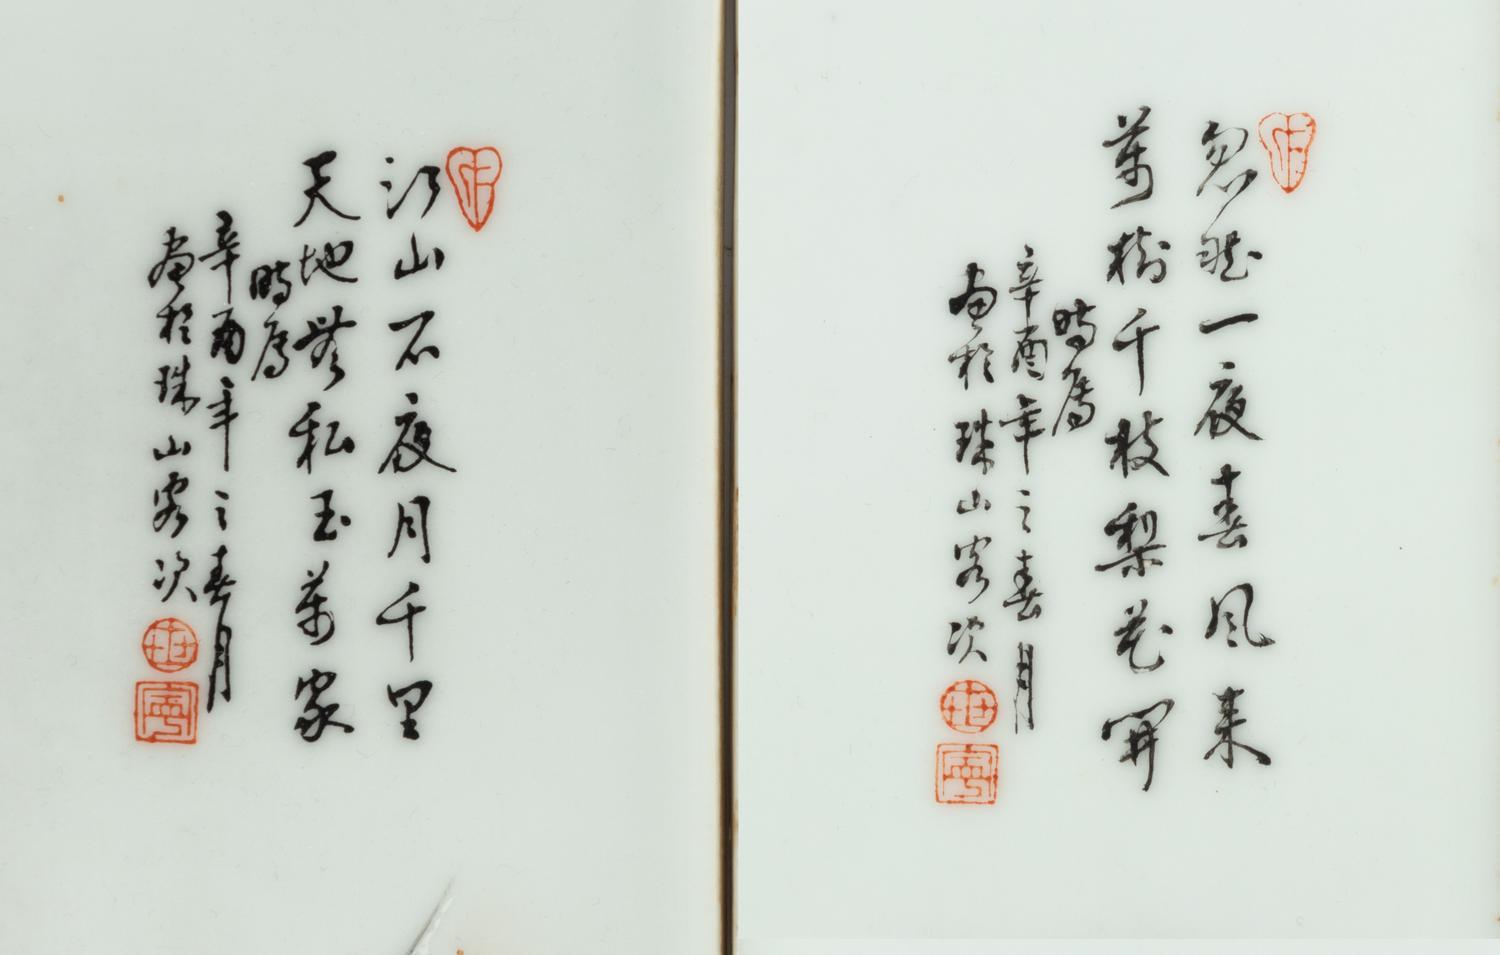 江山不夜月千里
天地無私玉萬家
時屬
辛酉年之春月
畫於珠山客次
忽然一夜春風来
萬樹千枝梨花開
時屬
辛酉年之春月
畫於珠山客次